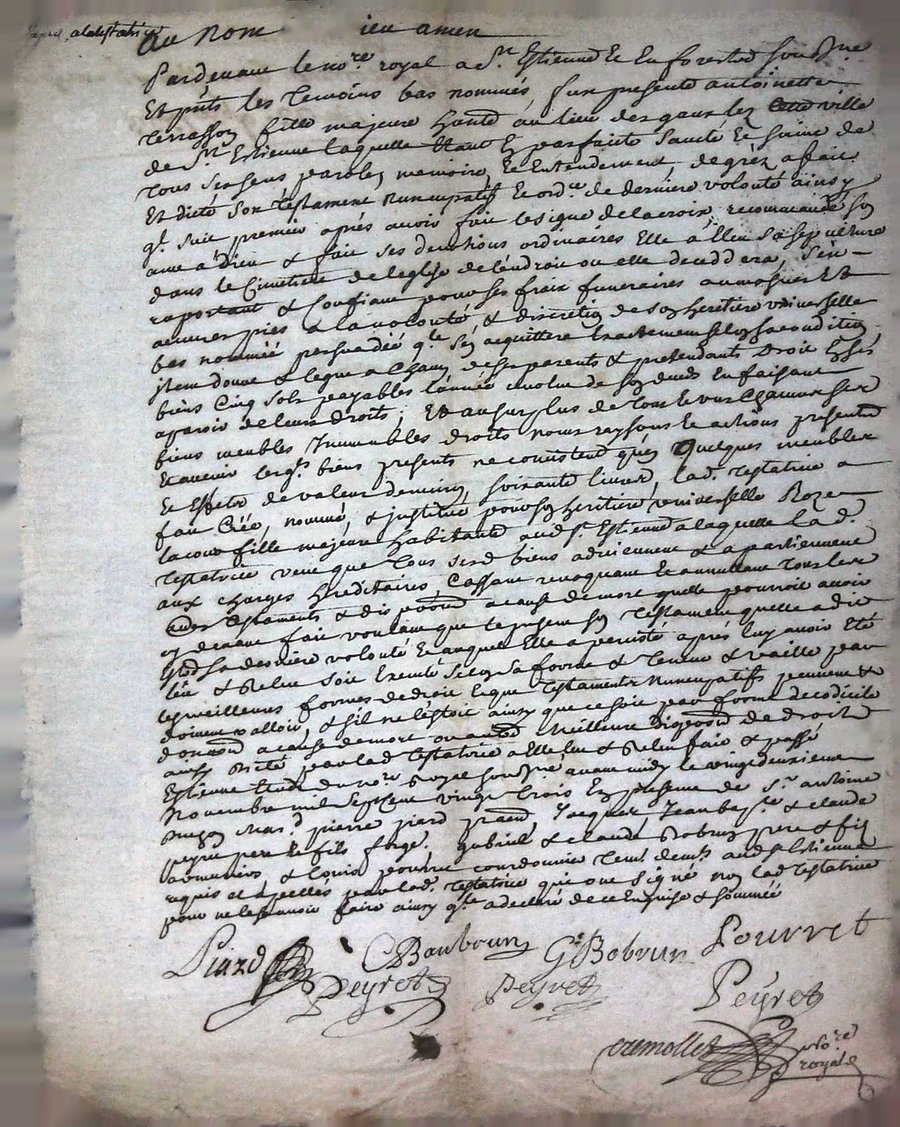 au nom ieu amen
Pardevant le no.re royal a S.t Estienne et En forestz soubsigné
Et pnts les temoins bas nommés fust presente antoinette
terrasson fille majeure au lieu des gaux lez ville
de S.t Estienne laquelle Etant En parfaite Santé Et saine de
tous Ses sens parole, memoire, Et Entendement de grez a fait
Et dicté Son testament nuncupatif Et ord.ce de derniere volonté ainsy
q.l suit premier après avoir fait le signe de la croix, recommandé son
ame a Dieu & fait ses devotions ordinaires Elle a Eleu Sa Sepulture
dans le Cimetiere de l'eglise de l'endroit ou elle deceddera, S'en
raportant & Confiant pour ses frais funeraires aumosnes Et
œuvres pies a la volonté & discretion de Son heritiere universelle
bas nommée persuadée q.le S'en acquittera Exactement selon sa condition
jtem donne & legue a Chacun de ses parents & pretendants Droit En Ses
biens Cinq Sols payables l'année revolue de son deces En faisant
aparoir de leurs droits; Et au surplus de tous Et uns Chacuns Ses
biens meubles Immeubles droits noms raysons Et actions presents
Et avenir lesq.ls biens presents ne consistent qu'en quelques meubles
Et Effets de valeur d'environ soixante livres, lad. testatrice a
fait Créé, nommé, & institué pour son heritiere universelle Roze
lacour fille majeure habitante aud S.t Estienne a laquelle lad.
testatrice veut que tous sesd biens adviennent & apartiennent
aux charges hereditaires Cassant revoquant Et annullant tous
autres testaments & dis p̃oõns a cause de mort quelle pourroit avoir
cy devant fait voulant que le present son testament quelle a dit
Estre Sa derniere volonté Et auquel Elle a persisté après luy avoir Eté
leu & Releu Soit Executé Selon Sa forme & teneur & vaille par
les meilleures formes de droit Et que testaments nuncupatifs peuvent &
doivent valloir, & s'il ne l'estoit ainsy que ce soit par forme de codicile
donnaõn a cause de mort ou autre Meilleure dispoõn de droit
ainsy dicté par lad testatrice a Elle leu & Releu fait & passé
Estienne Etude du no.re Royal soussigné avant midy le vingt deuxieme
Novembre mil Sept cent vingt trois En presence de S.r antoine
Mar.d pierre piard jacques jean bap.te & claude
peyret pere & fils forge. Gabriel & claude Bobrun pere & fils
armuriers & Louis pourret courdonnie tem.s dem.ts aud S.t Estienne
requis et apelles par lad. testatrice qui ont signé non lad testatrice
pour ne le scavoir faire ainsy q.le a declaré de ce Enquise & Sommée
Piard C Baubrun G. Bobrun Pourret
Peyret Peyret Peyret
cremollet no.re
royal